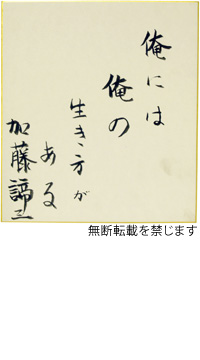 俺には
俺の
生き方が
ある
加藤諦三
無断転載を禁じます